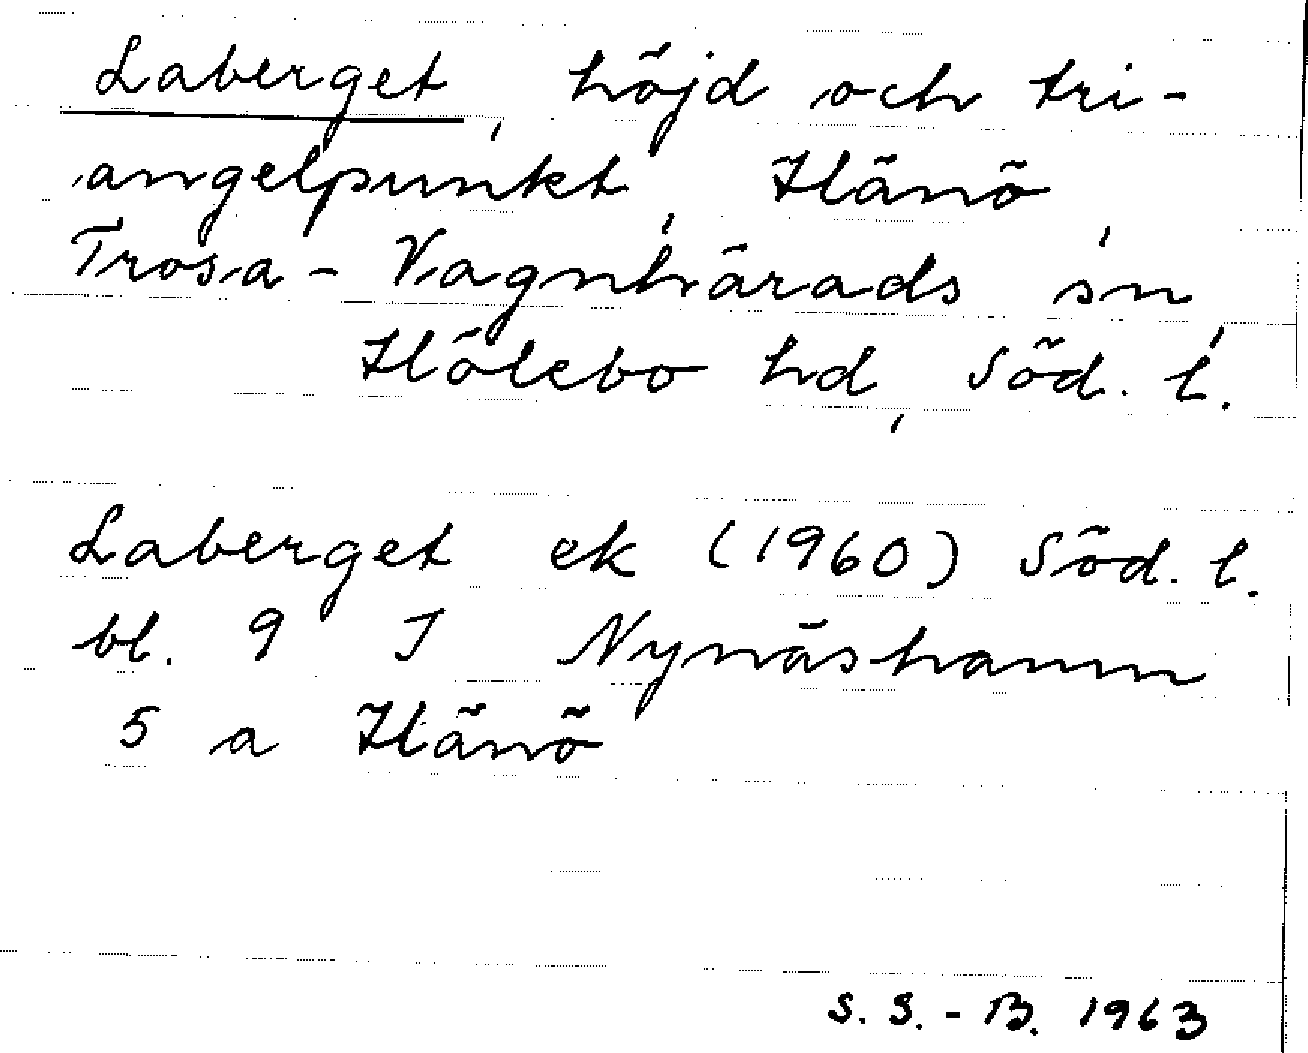 Laberget, höjd och tri-
angelpunkt, Hänö,
Trosa-Vagnhärads sn,
Hölebo hd, Söd. l.
Laberget ek (1960) Söd. l.
bl. 9 I Nynäshamn
5 a Hänö
S. S.-B. 1963